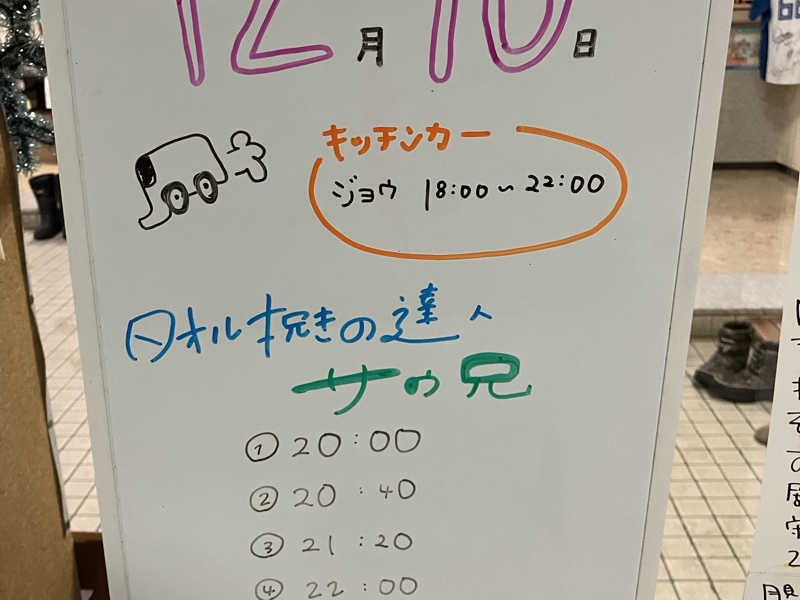 12月10日
キッチンカー
ジョウ 18:00〜22:00
タオル捌きの達人
サウ兄
① 20:00
② 20:40
③ 21:20
④ 22:00